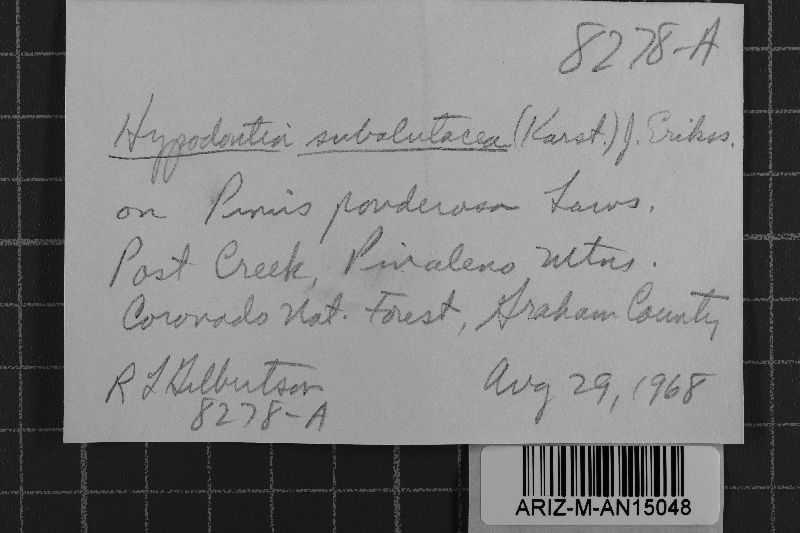 8278-A
Hypodontia subalutacea (Karst.) J. Erikss.
on Pinus ponderosa Laws.
Post Creek, Pinaleno Mtns.
Coronado Nat. Forest, Graham County
R L Gilbertson
8278-A
Aug 29, 1968
ARIZ-M-AN15048